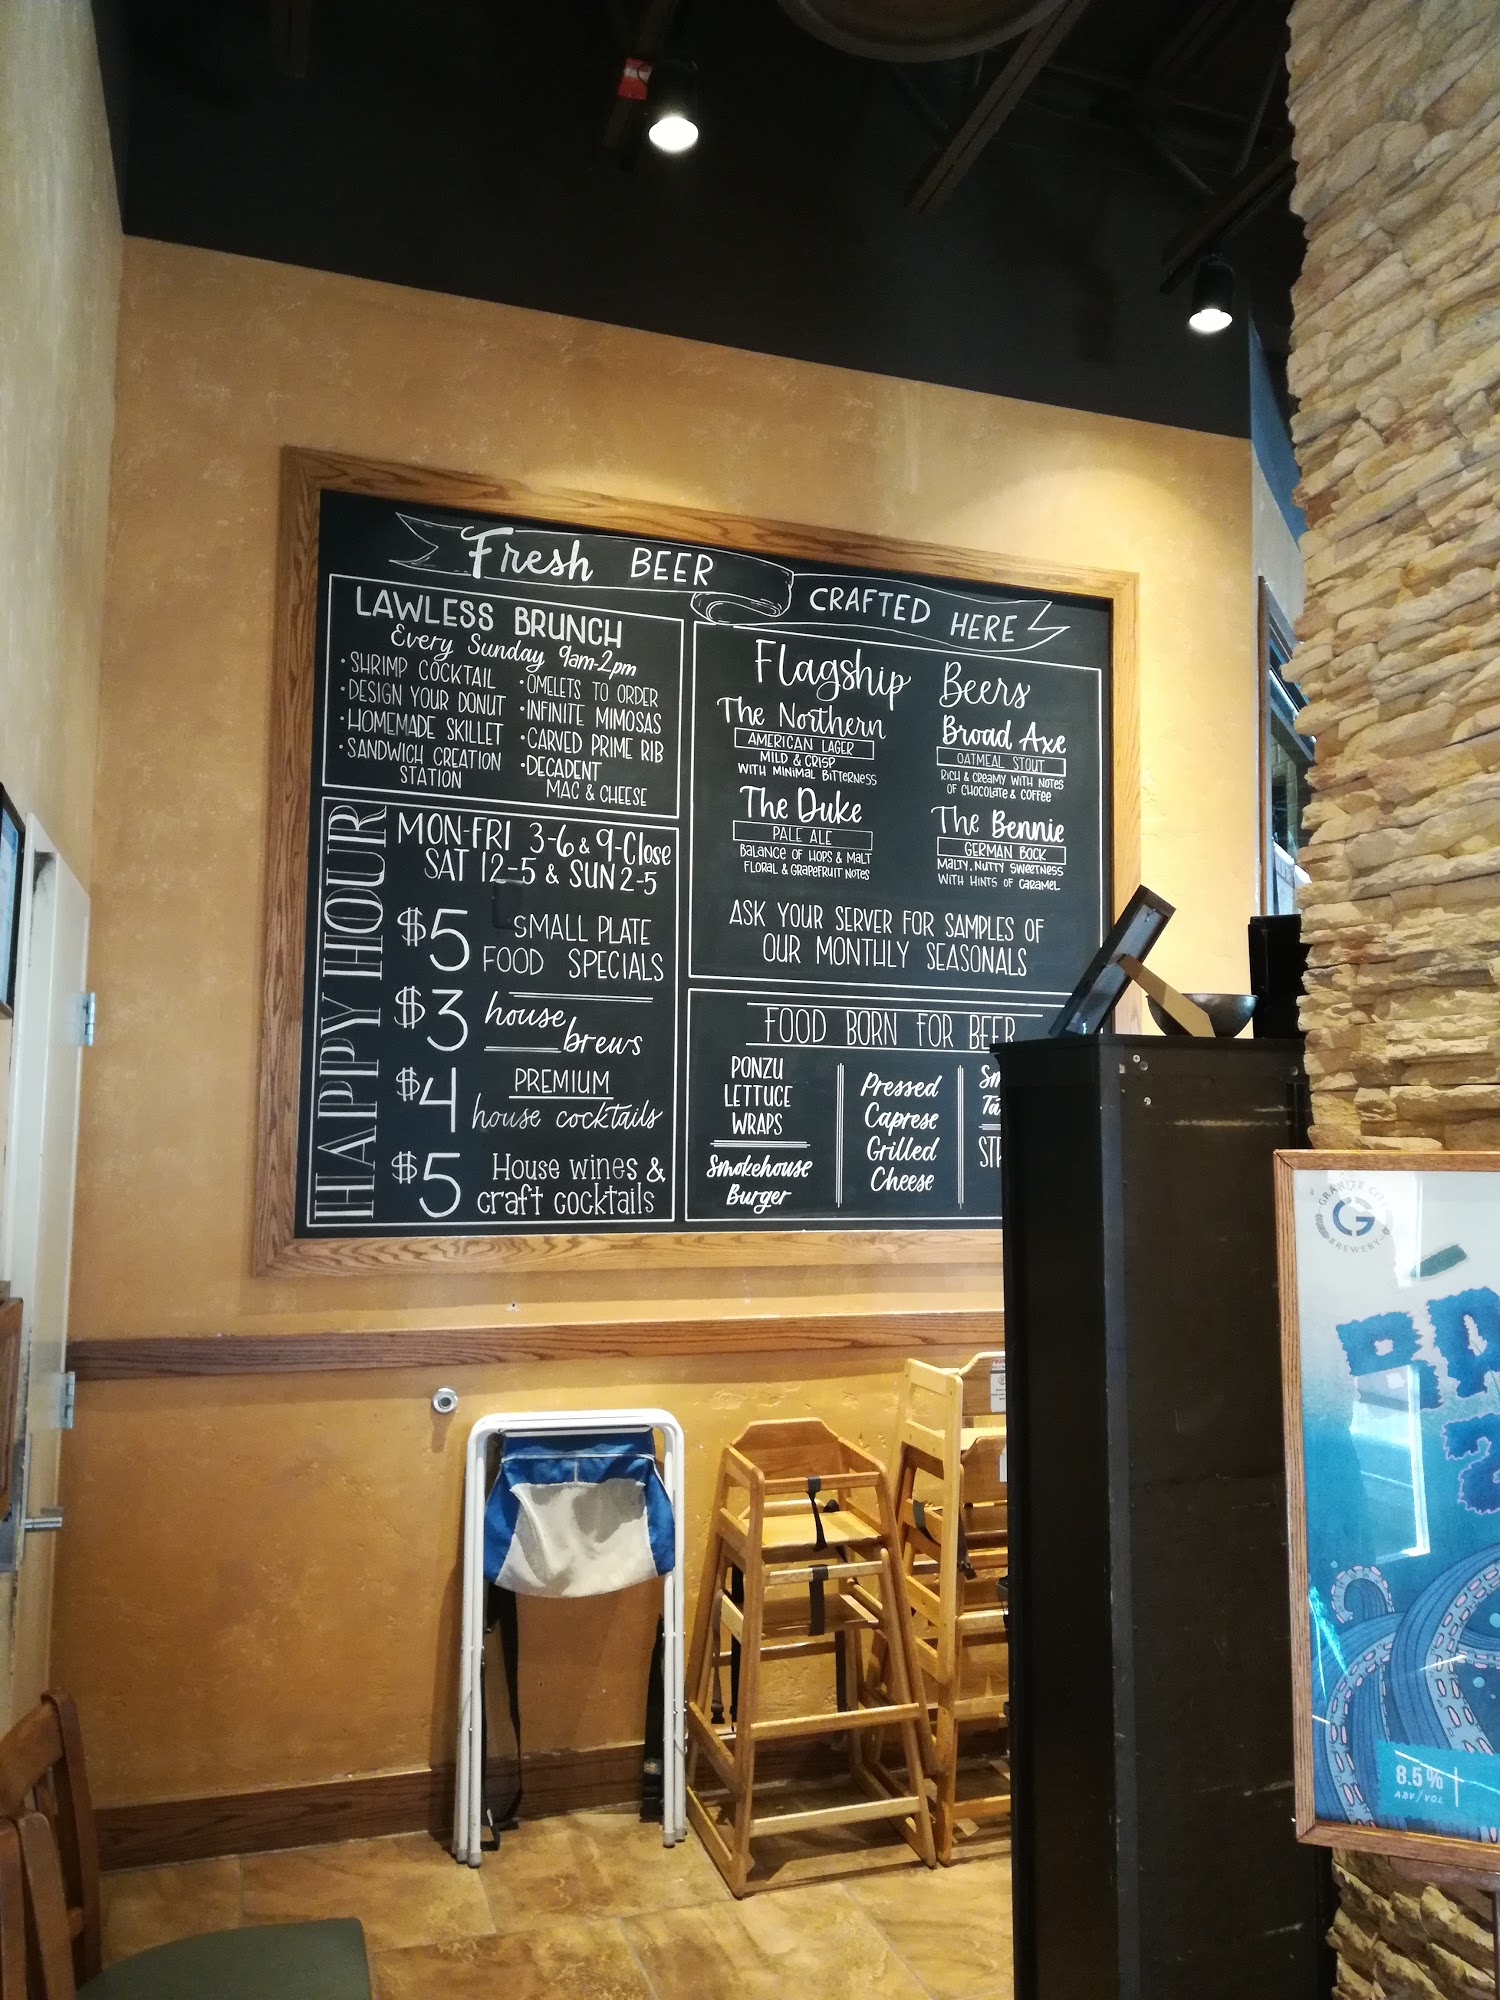 Fresh BEER CRAFTED HERE
LAWLESS BRUNCH
Every Sunday 9am-2pm
• SHRIMP COCKTAIL
• DESIGN YOUR DONUT
• HOMEMADE SKILLET
• SANDWICH CREATION
STATION
• OMELETS TO ORDER
• INFINITE MIMOSAS
• CARVED PRIME RIB
• DECADENT
MAC & CHEESE
HAPPY HOUR
MON-FRI 3-6 & 9-Close
SAT 12-5 & SUN 2-5
$5 SMALL PLATE
FOOD SPECIALS
$3 house
brews
$4 PREMIUM
house cocktails
$5 House wines &
craft cocktails
Flagship Beers
The Northern
AMERICAN LAGER
MILD & CRISP
WITH MINIMAL BITTERNESS
The Duke
PALE ALE
BALANCE OF HOPS & MALT
FLORAL & GRAPEFRUIT NOTES
Broad Axe
OATMEAL STOUT
RICH & CREAMY WITH NOTES
OF CHOCOLATE & COFFEE
The Bennie
GERMAN BOCK
MALTY, NUTTY SWEETNESS
WITH HINTS OF CARAMEL
ASK YOUR SERVER FOR SAMPLES OF
OUR MONTHLY SEASONALS
FOOD BORN FOR BEER
PONZU
LETTUCE
WRAPS
Smokehouse
Burger
Pressed
Caprese
Grilled
Cheese
GRANITE CITY
G
BREWERY
8.5%
ABV/VOL